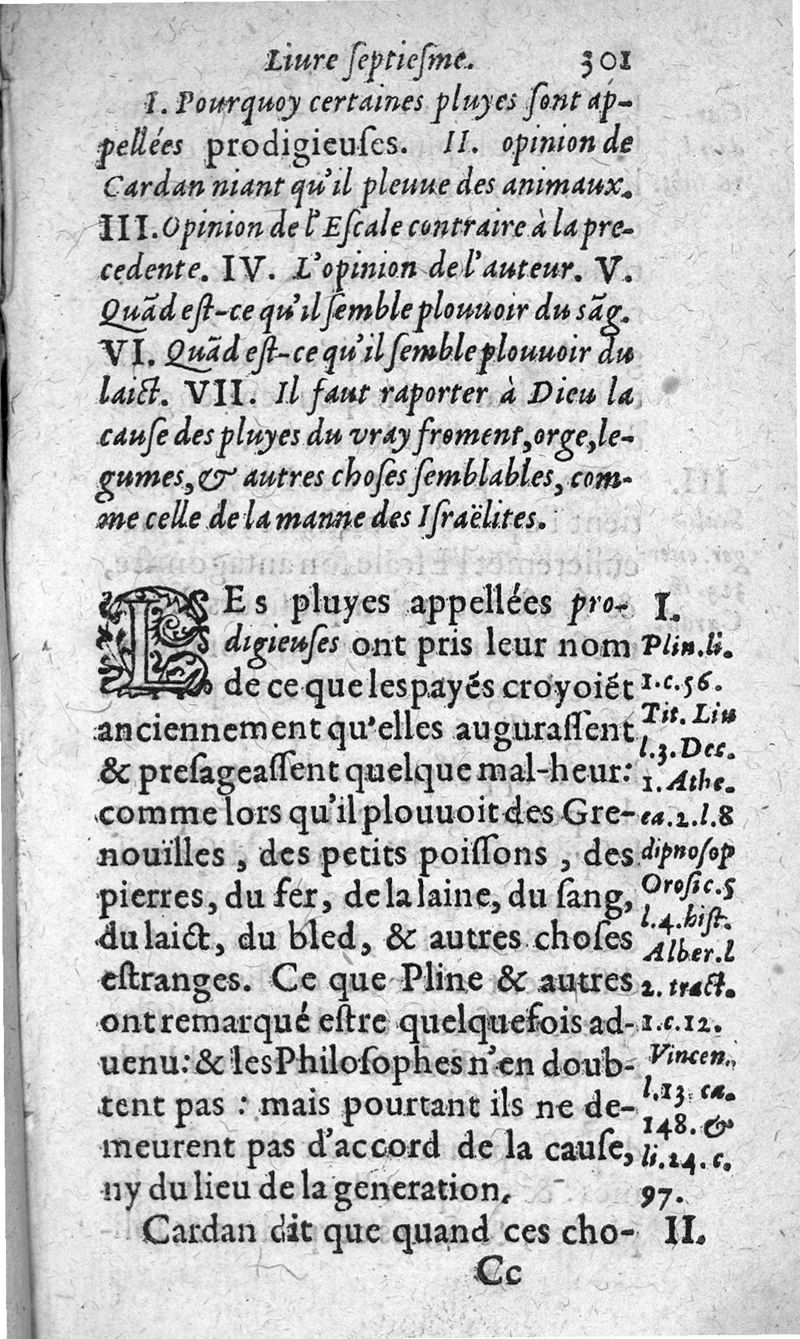 Liure ſeptieſme. 301
I. Pourquoy certaines pluyes ſont ap-
pellées prodigieuſes. II. opinion de
Cardan niant qu'il pleuue des animaux.
III. Opinion de l'Eſcale contraire à la pre-
cedente. IV. L'opinion de l'auteur. V.
Quãd eſt-ce qu'il ſemble plouuoir du sãg.
VI. Quãd eſt-ce qu'il ſemble plouuoir du
laict. VII. Il faut raporter à Dieu la
cauſe des pluyes du vray froment, orge, le-
gumes, & autres choſes ſemblables, com-
me celle de la manne des Iſraëlites.
LEs pluyes appellées pro-
digieuſes ont pris leur nom
de ce que les payẽs croyoiẽt
anciennement qu'elles auguraſſent
& preſageaſſent quelque mal-heur:
comme lors qu'il plouuoit des Gre-
nouïlles, des petits poiſſons, des
pierres, du fer, de la laine, du ſang,
du laict, du bled, & autres choſes
eſtranges. Ce que Pline & autres
ont remarqué eſtre quelquefois ad-
uenu: & les Philoſophes n'en doub-
tent pas : mais pourtant ils ne de-
meurent pas d'accord de la cauſe,
ny du lieu de la generation.
Cardan dit que quand ces cho-
Cc
I.
Plin. li.
1. c. 56.
Tit. Liu
l. 3. Dec.
1. Athe.
ea. 2. l. 8
dipnoſop
Oroſi c. 5
l. 4. hiſt.
Alber. l
2. tract.
1. c. 12.
Vincen.
l. 13. ca.
148. &
li. 14. c.
97.
II.